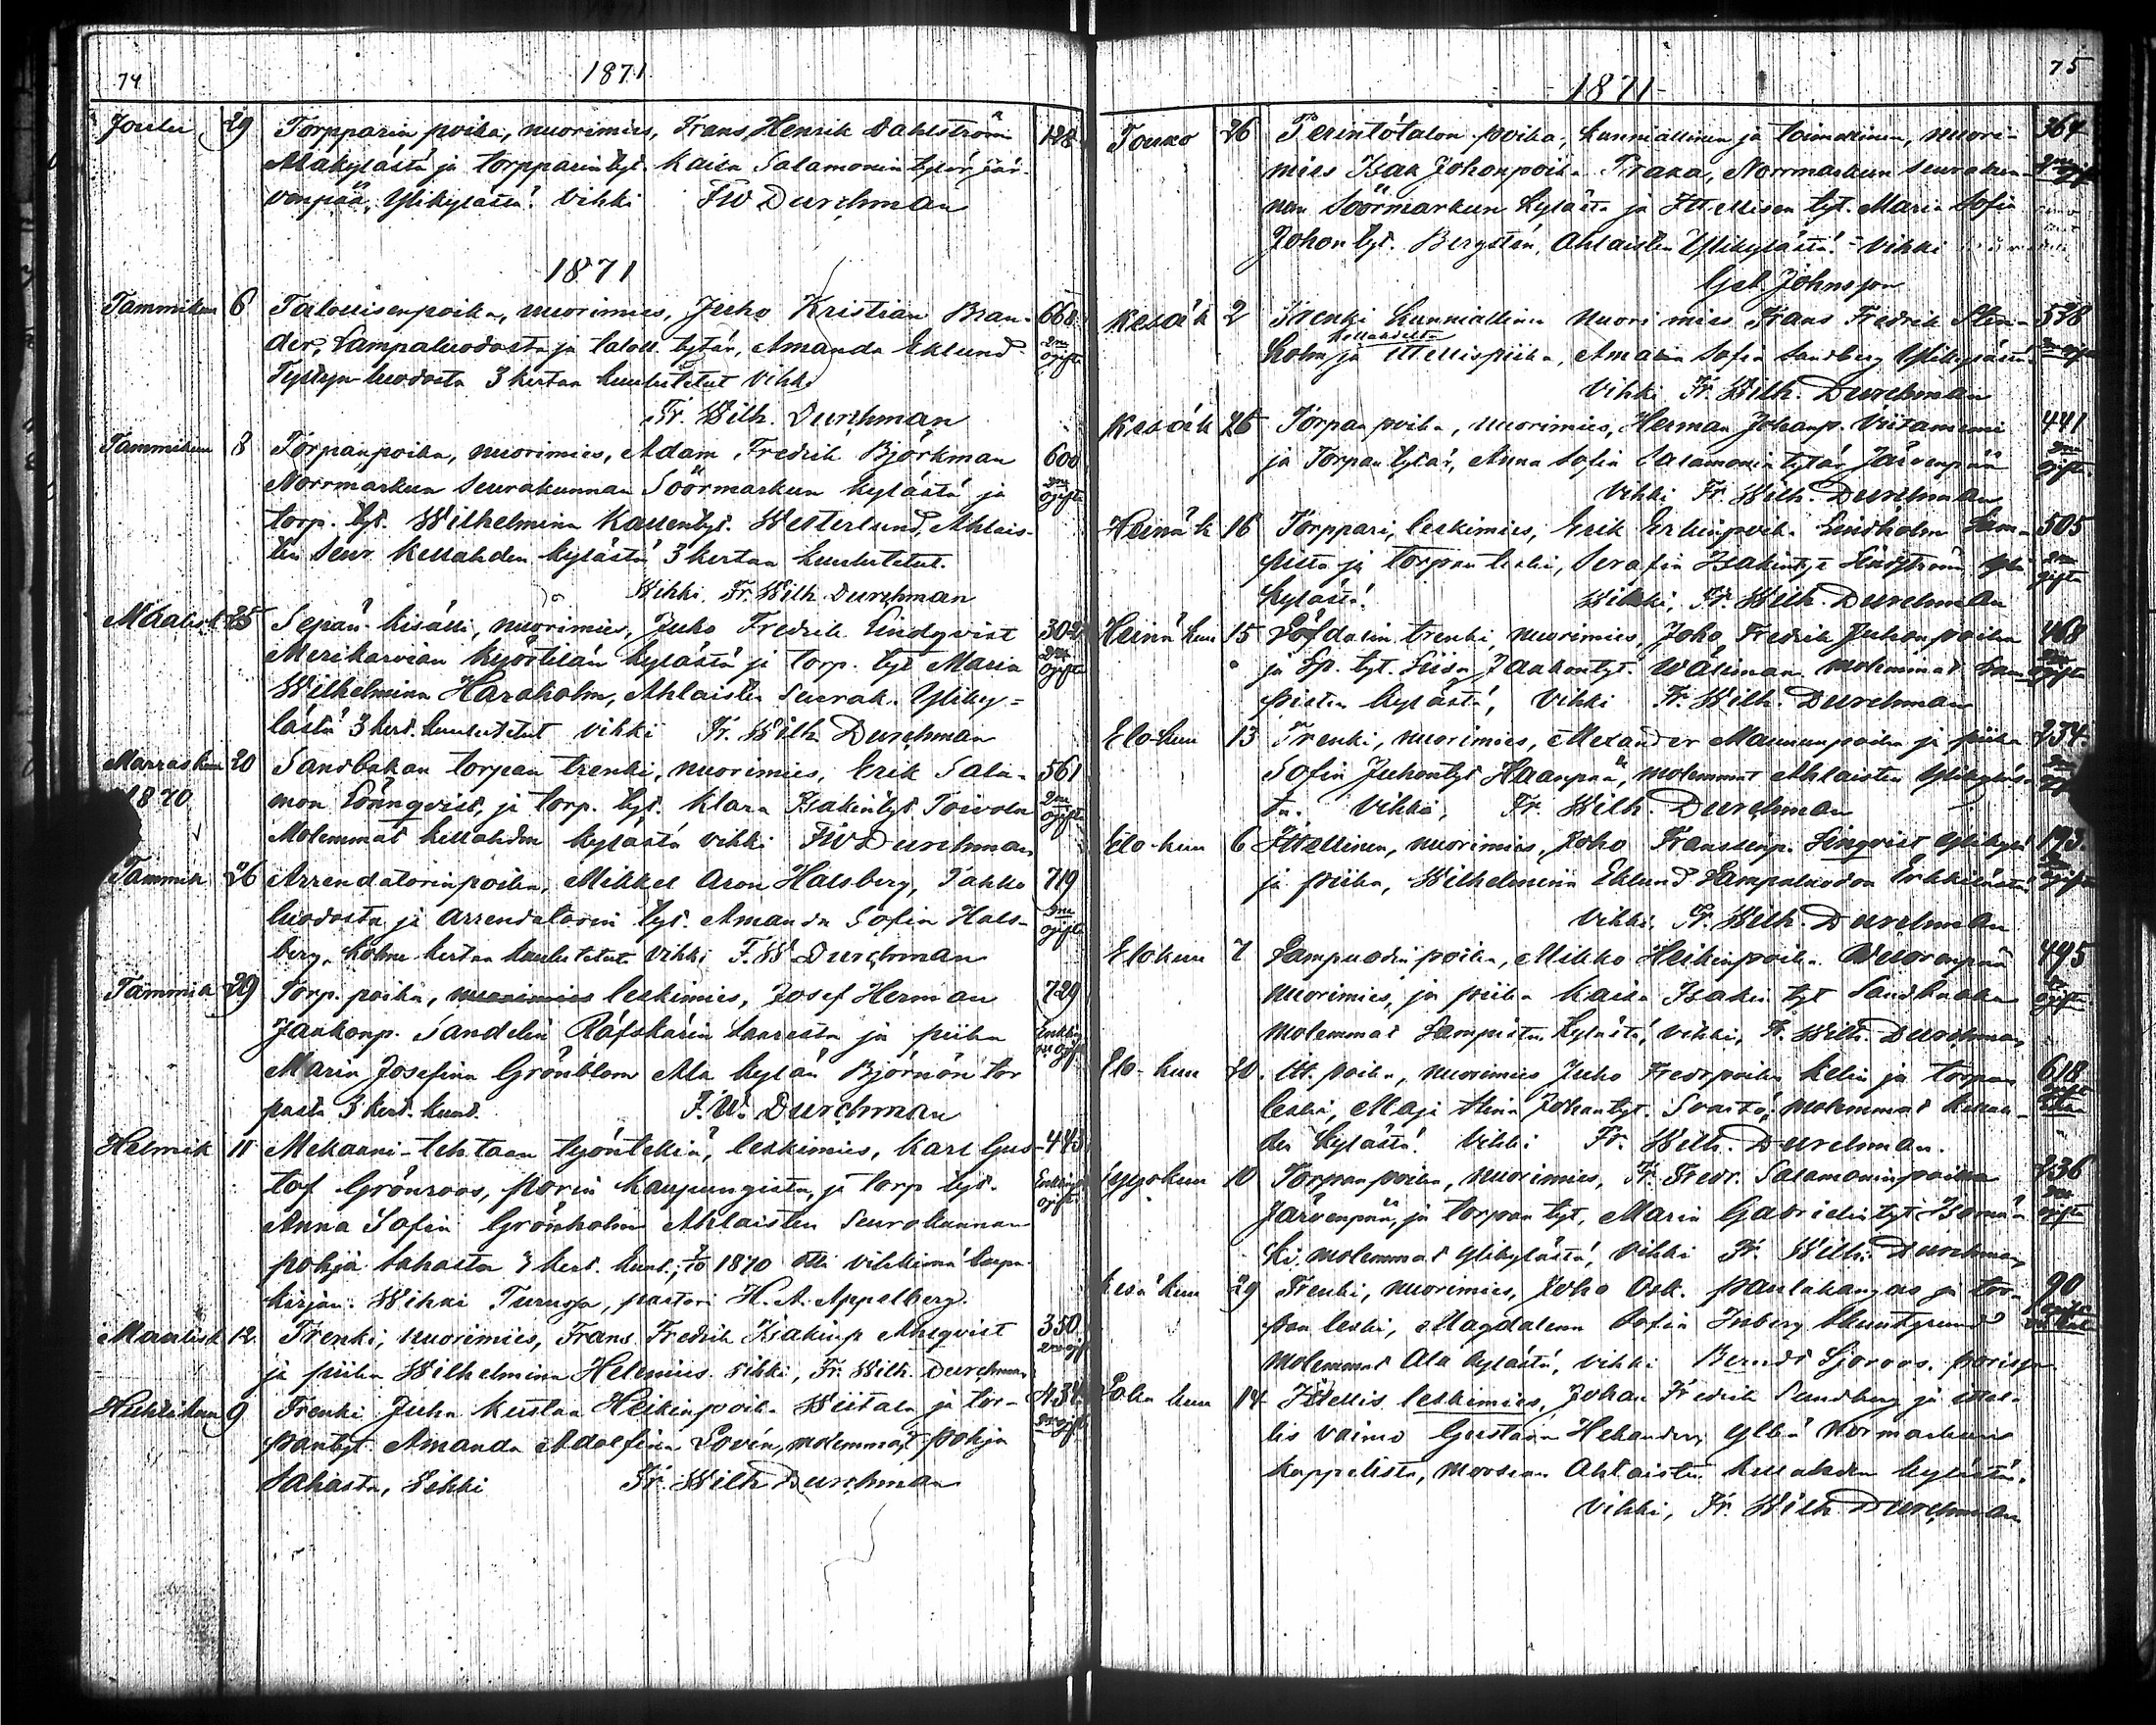 74
1871
Joulu 29 Torpparin poika, nuorimies, Frans Henrik Dahlström 128
Alakylästä ja torpparin tyt. Kaisa Salamonin tytär Jär-
venpää, Ylikylästä. Vihki FW Durchman
1871
Tammikuu 6 Talollisenpoika, nuorimies, Juho Kristian Bran- 668
der, Lampaluodosta ja taloll. tytär, Amanda Eklund 2ne ogifta
luodosta 3 kertaa kuulutetut vihki
Fr. Wilh. Durchman
Tammikuu 8 Torpanpoika, nuorimies, Adam Fredrik Björkman 600
Norrmarkun seurakunnan Söörmarkun kylästä ja 2ne ogifta
torp. tyt. Wilhelmina Kallentyt. Westerlund, Ahlais-
ten seur. Kellahden kylästä 3 kertaa kuulutetut.
Vihki. Fr. Wilh. Durchman
Maalisk 25 Sepän kisälli, nuorimies, Juho Fredrik Lindqvist 302
Merikarvian Köörtilän kylästä ja torp. tyt Maria 2ne ogifta
Wilhelmina Haraholm, Ahlaisten seurak. Yliky=
lästä 3 kert. kuulutetut vihki Fr. Wilh Durchman
Marraskuu 20 Sandbakan torpan trenki, nuorimies, Erik Sala- 561
1870 mon Lönnqvist, ja torp. tyt. Klara Isakintyt. Toivola 2ne ogifta
Molemmat Kellahden kylästä vihki FW Durchman
Tammik 26 Arrendatorinpoika, Mikkel Aron Halsberg, Tahko 719
luodosta ja arrendatorin tyt. Amanda Sofia Hals- 2ne ogifta
berg. kolme kertaa kuulutetut vihki F. W Durchman
Tammik 29 Torp. poika, leskimies, Josef Herman 729
Jaakonp. Sandelin Räfskärin saaresta ja piika Enkling
Maria Josefina Grönblom Ala kylän Björnön tor
pasta 3 kert. kuul. F. W. Durchman
Helmik 11 Mekaani-tehtaan työntekiä, leskimies, Karl Gus- 443
tof Grönroos, Porin kaupungista, ja torp tyt.
Anna Sofia Grönholm Ahlaisten seurakunnan
pohja sahasta 3 kert. kuul.; 1870 otti vihkimä lupa-
kirjan. Wihki Turussa, pastori H. A. Appelberg.
Maalisk 12. Trenki, nuorimies, Frans Fredrik Isakinp Ahlqvist 350
ja piika Wilhelmina Helenius. vihki, Fr. Wilh. Durchman
Huhtikuu 9 Trenki Juha Kustaa Heikinpoika Wiitala ja tor-
pantyt. Amanda Adolfina Lovén, molemmat pohja
Sahasta, Vihki Fr. Wilh Durchman
75
1871
Touko 26 Perintötalon poika, kunniallinen ja toimellinen, nuori- 364
mies Isak Johonpoika Praka, Norrmarkun seurakun-
nan Söörmarkun kylästä ja Itellisen tyt. Maria Sofia
Johon tyt. Bergstén, Ahlaisten Ylikylästä. - Vihki
Johnsson
Kesäk 2 Trenki kunniallinen nuorimies Frans Fredrik Sten- 538
holm, Kellahdelta ja ittellispiika, Amalia Sofia Sandberg Ylikylästä.
Vihki Fr. Wilh. Durchman
Kesäk 25 Torpan poika, nuorimies, Herman Johanp. Viitaniemi 441
ja Torpan tytär, Anna Sofia Salamonin tytär Järvenpää 2ne ogifta
Vihki Fr. Wilh. Durchman
Heinäk 16 Torppari, leskimies, Erik Erkinpoika Lindholm Lam- 505
pista ja torpan leski, Serafia Isakintyt Yli
kylästä. Wihki, Fr. Wilh. Durchman
Heinä kuu 15 Löfdalin trenki, nuorimies, Joho Fredrik Juhonpoika 468
ja Sp. tyt. Liisa Jaakontyt. Wäliman molemmat Lam-
pistin kylästä, Vihki Fr. Wilh. Durchman
Elo-kuu 13 Trenki, nuorimies, Alexander Maununpoika ja piika 234
Sofia Juhontyt Haanpää, molemmat Ahlaisten Ylikyläs-
tä. Vihki, Fr. Wilh. Durchman
Elo-kuu 6 Ittellinen, nuorimies, Joho Franssinp. Linqvist Ylikyl. 193
ja piika, Wilhelmina Eklund Lampaluodon
Vihki. Fr. Wilh. Durchman
Elokuu 7 poika, Mikko Heikinpoika Wuorenpää 495
nuorimies, ja piika Kaisa Isakin tyt Sandbacka
Molemmat Lampistin kylästä, vihki, Fr. Wilh. Durchman
Elo-kuu 20. Itt. poika, nuorimies Juho Fredr.poika Kelin ja torpan 618
leski, Maja Stina Johantyt. molemmat Kellah-
den kylästä. Vihki Fr. Wilh. Durchman.
Syyskuu 10 Torpan poika, nuorimies, Fr. Fredr. Salamoninpoika 236
Järvenpää, ja torpan tyt, Maria Gabrielin tyt Isomä
ki, molemmat Ylikylästä, vihki Fr. Wilh. Durchman
Kesä kuu 29 Trenki, nuorimies, Joho Osk. Paulakangas ja tor- 90
pan leski, Magdalena Sofia Inberg
molemmat Ala kylästä, vihki Berndt Sjöroos. Porissa
Loka kuu 14 Ittellis leskimies, Johan Fredrik Sandberg ja ittel-
lis vaimo Gustava Norrmarkun
kappelista, Ahlaisten Kellahden kylästä.
Vihki, Fr. Wilh Durchman